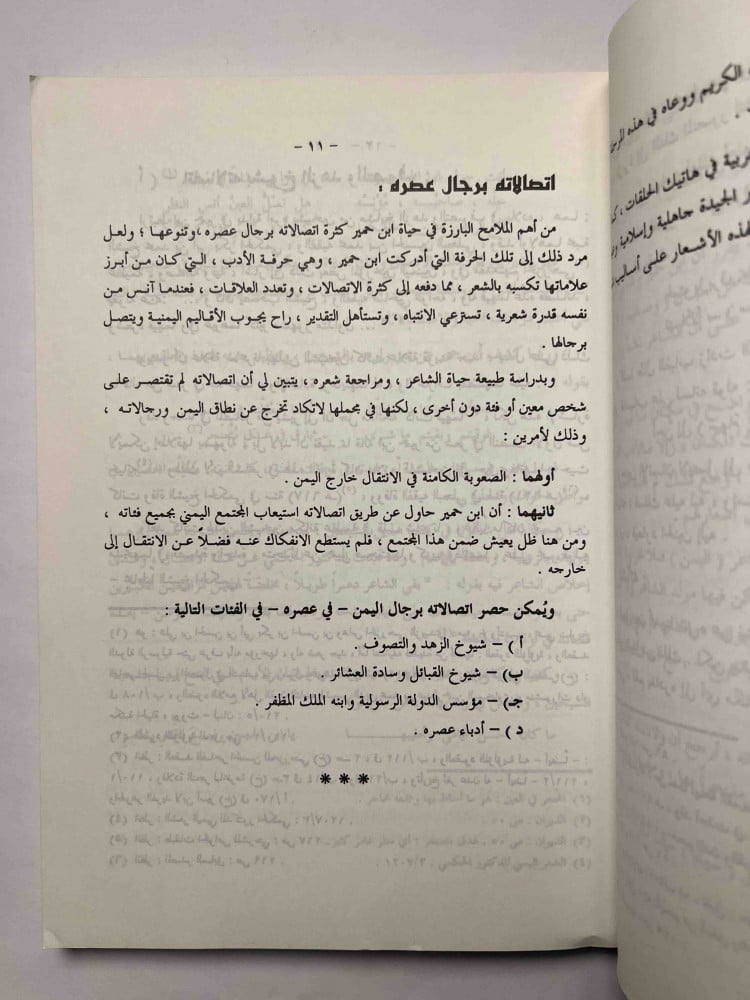 - ١١ -
اتصالاته برجال عصره :
من أهم الملامح البارزة في حياة ابن حمير كثرة اتصالاته برجال عصره ،وتنوعها ؛ ولعل
مرد ذلك إلى تلك الحرفة التي أدركت ابن حمير ، وهي حرفة الأدب ، التي كان من أبرز
علاماتها تكسبه بالشعر ، مما دفعه إلى كثرة الاتصالات ، وتعدد العلاقات ، فعندما آنس من
نفسه قدرة شعرية ، تسترعي الانتباه ، وتستأهل التقدير ، راح يجوب الأقاليم اليمنية ويتصل
برجالها .
وبدراسة طبيعة حياة الشاعر ، ومراجعة شعره ، يتبين لي أن اتصالاته لم تقتصر على
شخص معين أو فئة دون أخرى ، لكنها في مجملها لاتكاد تخرج عن نطاق اليمن ورجالاته ،
وذلك لأمرين :
أولهما : الصعوبة الكامنة في الانتقال خارج اليمن .
ثانيهما : أن ابن حمير حاول عن طريق اتصالاته استيعاب المجتمع اليمني بجميع فئاته ،
ومن هنا ظل يعيش ضمن هذا المجتمع ، فلم يستطع الانفكاك عنه فضلاً عن الانتقال إلى
خارجه .
ويُمكن حصر اتصالاته برجال اليمن – في عصره – في الفئات التالية :
أ ) – شيوخ الزهد والتصوف .
ب) – شيوخ القبائل وسادة العشائر .
جـ) – مؤسس الدولة الرسولية وابنه الملك المظفر .
د ) – أدباء عصره .
***
الكريم ووعاه في هذه
في هاتيك الحلقات ،
الجيدة جاهلية وإسلامية
هذه الأشعار على